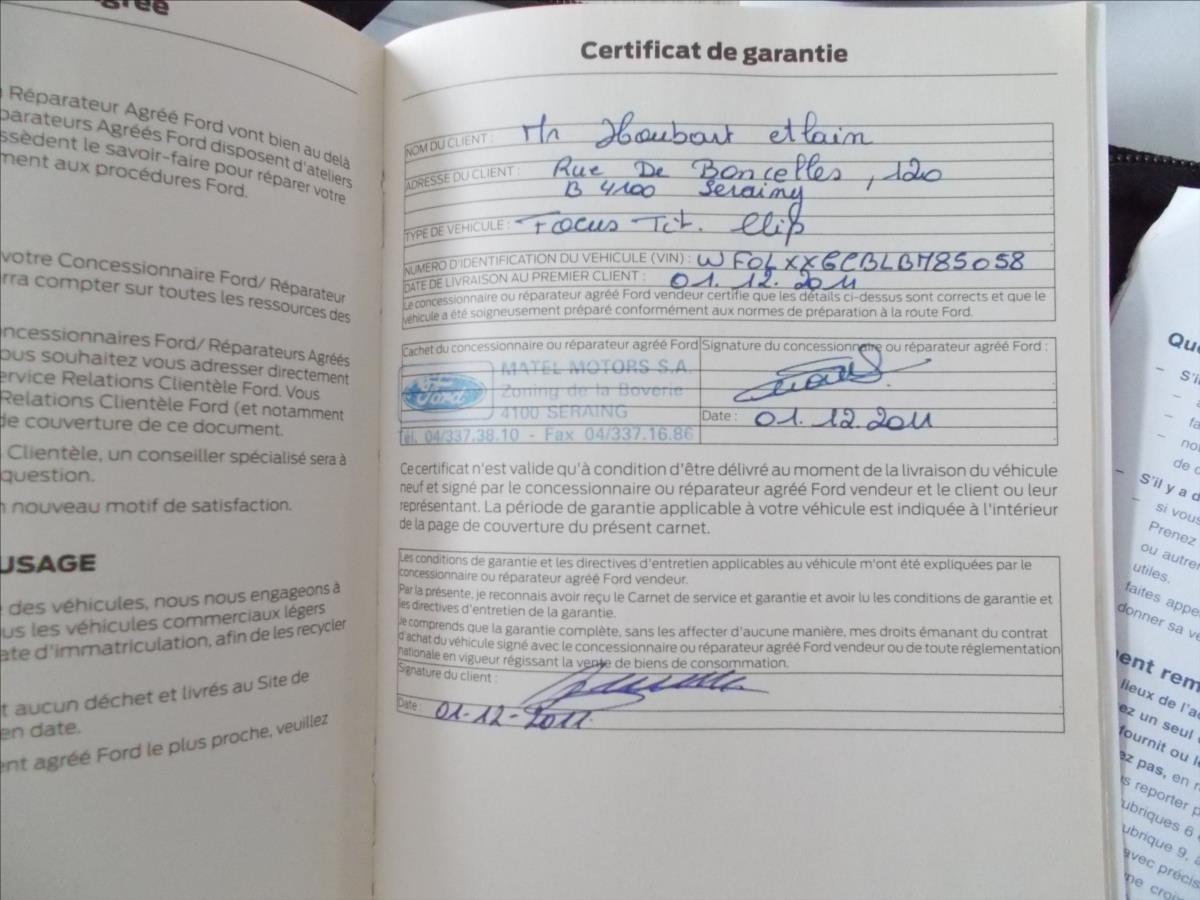 Agréé
Réparateur Agréé Ford vont bien au delà
parateurs Agréés Ford disposent d'ateliers
ssèdent le savoir-faire pour réparer votre
ment aux procédures Ford.
votre Concessionnaire Ford/ Réparateur
rra compter sur toutes les ressources des
oncessionnaires Ford/ Réparateurs Agréés
ous souhaitez vous adresser directement
ervice Relations Clientèle Ford. Vous
Relations Clientèle Ford (et notamment
de couverture de ce document.
Clientèle, un conseiller spécialisé sera à
question.
n nouveau motif de satisfaction.
USAGE
des véhicules, nous nous engageons à
us les véhicules commerciaux légers
ate d'immatriculation, afin de les recycler
t aucun déchet et livrés au Site de
en date.
ent agréé Ford le plus proche, veuillez
Certificat de garantie
NOM DU CLIENT : Mr Houbart
ADRESSE DU CLIENT : Rue De Boncelles, 120
B 4100 Seraing
TYPE DE VEHICULE : Focus Tit. Clip
NUMERO D'IDENTIFICATION DU VEHICULE (VIN) : WF0LXXGCBLB785058
DATE DE LIVRAISON AU PREMIER CLIENT : 01.12.2011
Le concessionnaire ou réparateur agréé Ford vendeur certifie que les détails ci-dessus sont corrects et que le
véhicule a été soigneusement préparé conformément aux normes de préparation à la route Ford.
Cachet du concessionnaire ou réparateur agréé Ford
Ford
MATEL MOTORS S.A.
Zoning de la Boverie
4100 SERAING
Tél. 04/337.38.10 - Fax 04/337.16.86
Signature du concessionnaire ou réparateur agréé Ford :
Date : 01.12.2011
Ce certificat n'est valide qu'à condition d'être délivré au moment de la livraison du véhicule
neuf et signé par le concessionnaire ou réparateur agréé Ford vendeur et le client ou leur
représentant. La période de garantie applicable à votre véhicule est indiquée à l'intérieur
de la page de couverture du présent carnet.
Les conditions de garantie et les directives d'entretien applicables au véhicule m'ont été expliquées par le
concessionnaire ou réparateur agréé Ford vendeur.
Par la présente, je reconnais avoir reçu le Carnet de service et garantie et avoir lu les conditions de garantie et
les directives d'entretien de la garantie.
Je comprends que la garantie complète, sans les affecter d'aucune manière, mes droits émanant du contrat
d'achat du véhicule signé avec le concessionnaire ou réparateur agréé Ford vendeur ou de toute réglementation
nationale en vigueur régissant la vente de biens de consommation.
Signature du client :
Date : 01-12-2011
Que
- S'il
- fa
- no
de c
- S'il y a d
- si vous
Prenez
ou autre
utiles.
faites appe
donner sa ve
ent rem
lieux de l'a
ez un seul
fournit ou l
ez pas, en r
s reporter p
ubriques 6
ubrique 9, a
avec précis
ne croi